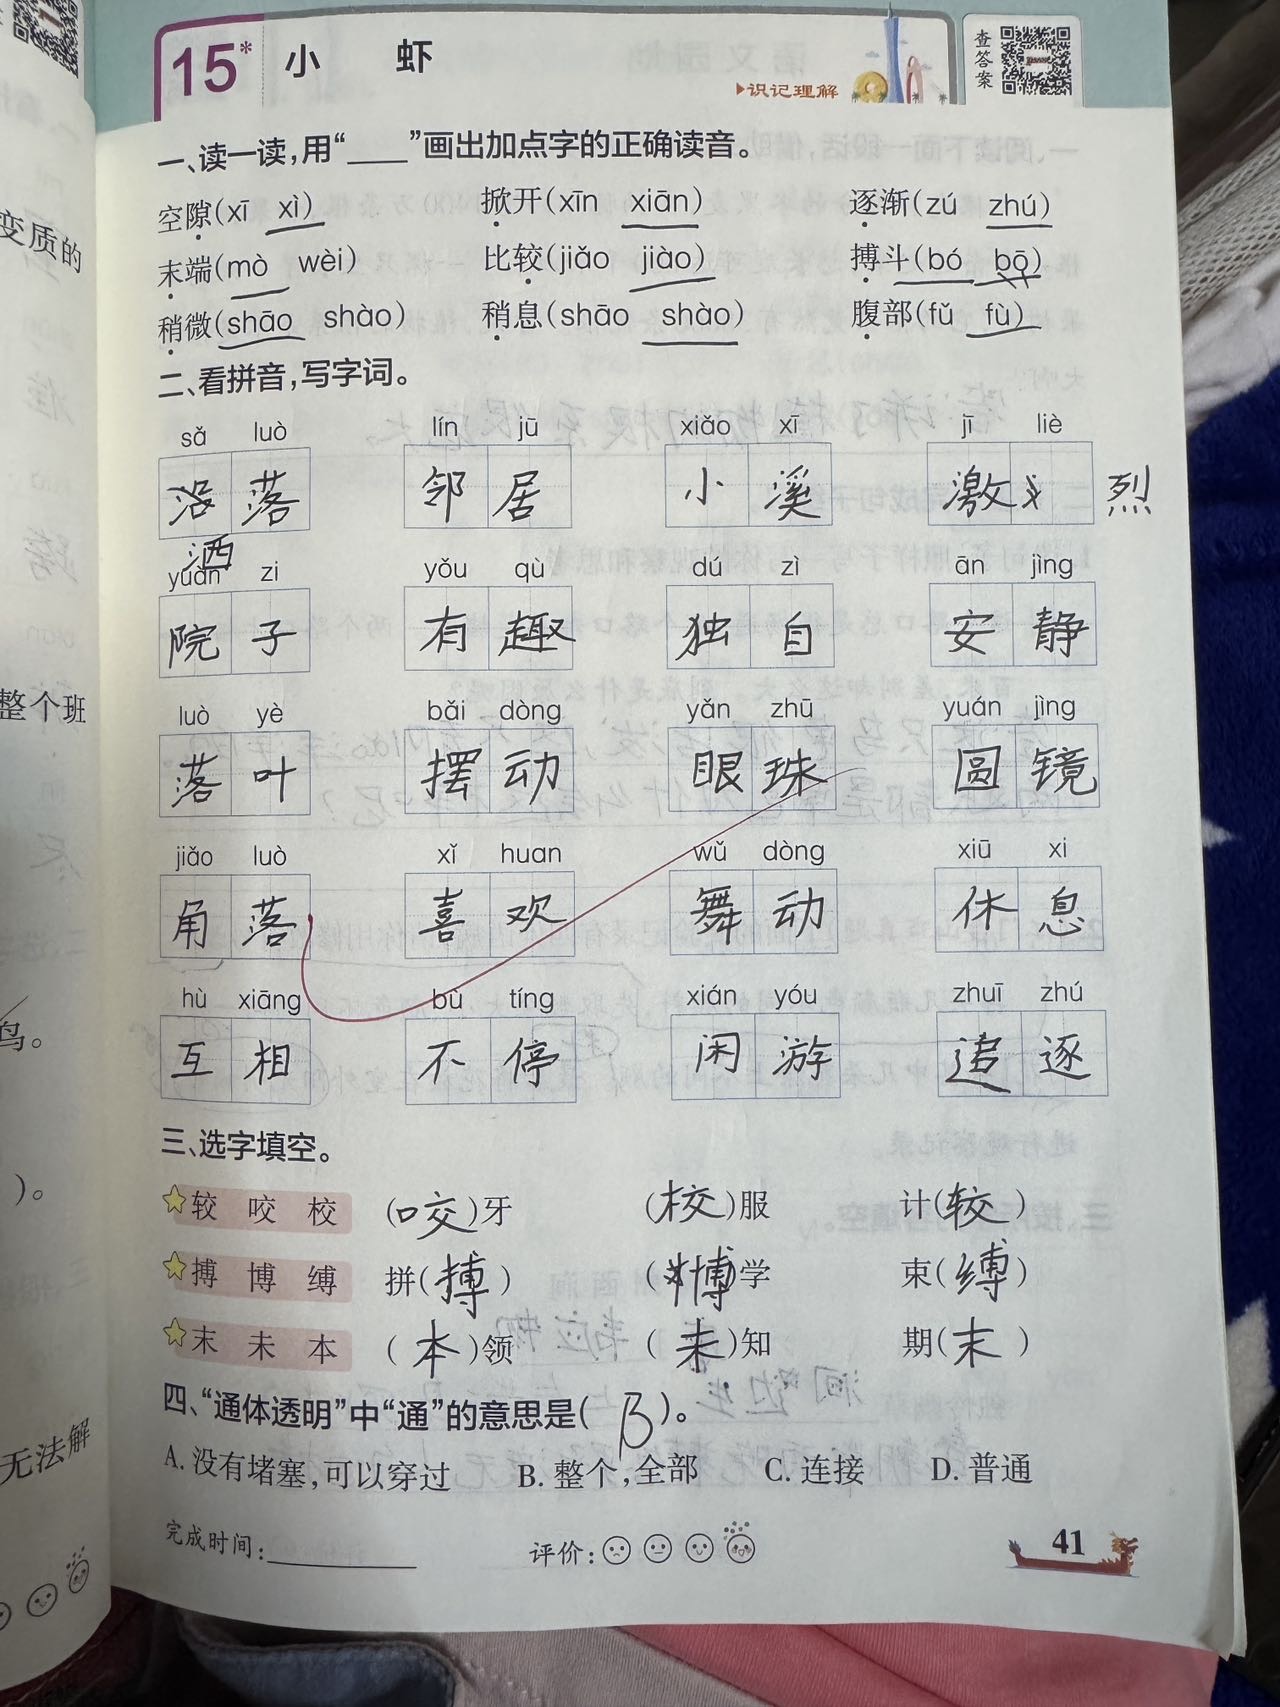 15* 小 虾
识记理解
查答案
一、读一读,用“____”画出加点字的正确读音。
空隙(xī xì) 掀开(xīn xiān) 逐渐(zú zhú)
末端(mò wèi) 比较(jiǎo jiào) 搏斗(bó bō)
稍微(shāo shào) 稍息(shāo shào) 腹部(fǔ fù)
二、看拼音,写字词。
sǎ luò lín jū xiǎo xī jī liè
落 邻居 小溪 激 烈
洒
yuàn zi yǒu qù dú zì ān jìng
院子 有趣 独自 安静
luò yè bǎi dòng yǎn zhū yuán jìng
落叶 摆动 眼珠 圆镜
jiǎo luò xǐ huan wǔ dòng xiū xi
角落 喜欢 舞动 休息
hù xiāng bù tíng xián yóu zhuī zhú
互相 不停 闲游 追逐
三、选字填空。
较 咬 校 (咬)牙 (校)服 计(较)
搏 博 缚 拼(搏) (博)学 束(缚)
末 未 本 (本)领 (未)知 期(末)
四、“通体透明”中“通”的意思是( B )。
A. 没有堵塞,可以穿过 B. 整个,全部 C. 连接 D. 普通
完成时间: 评价:
41
变质的
整个班
鸟。
)。
无法解